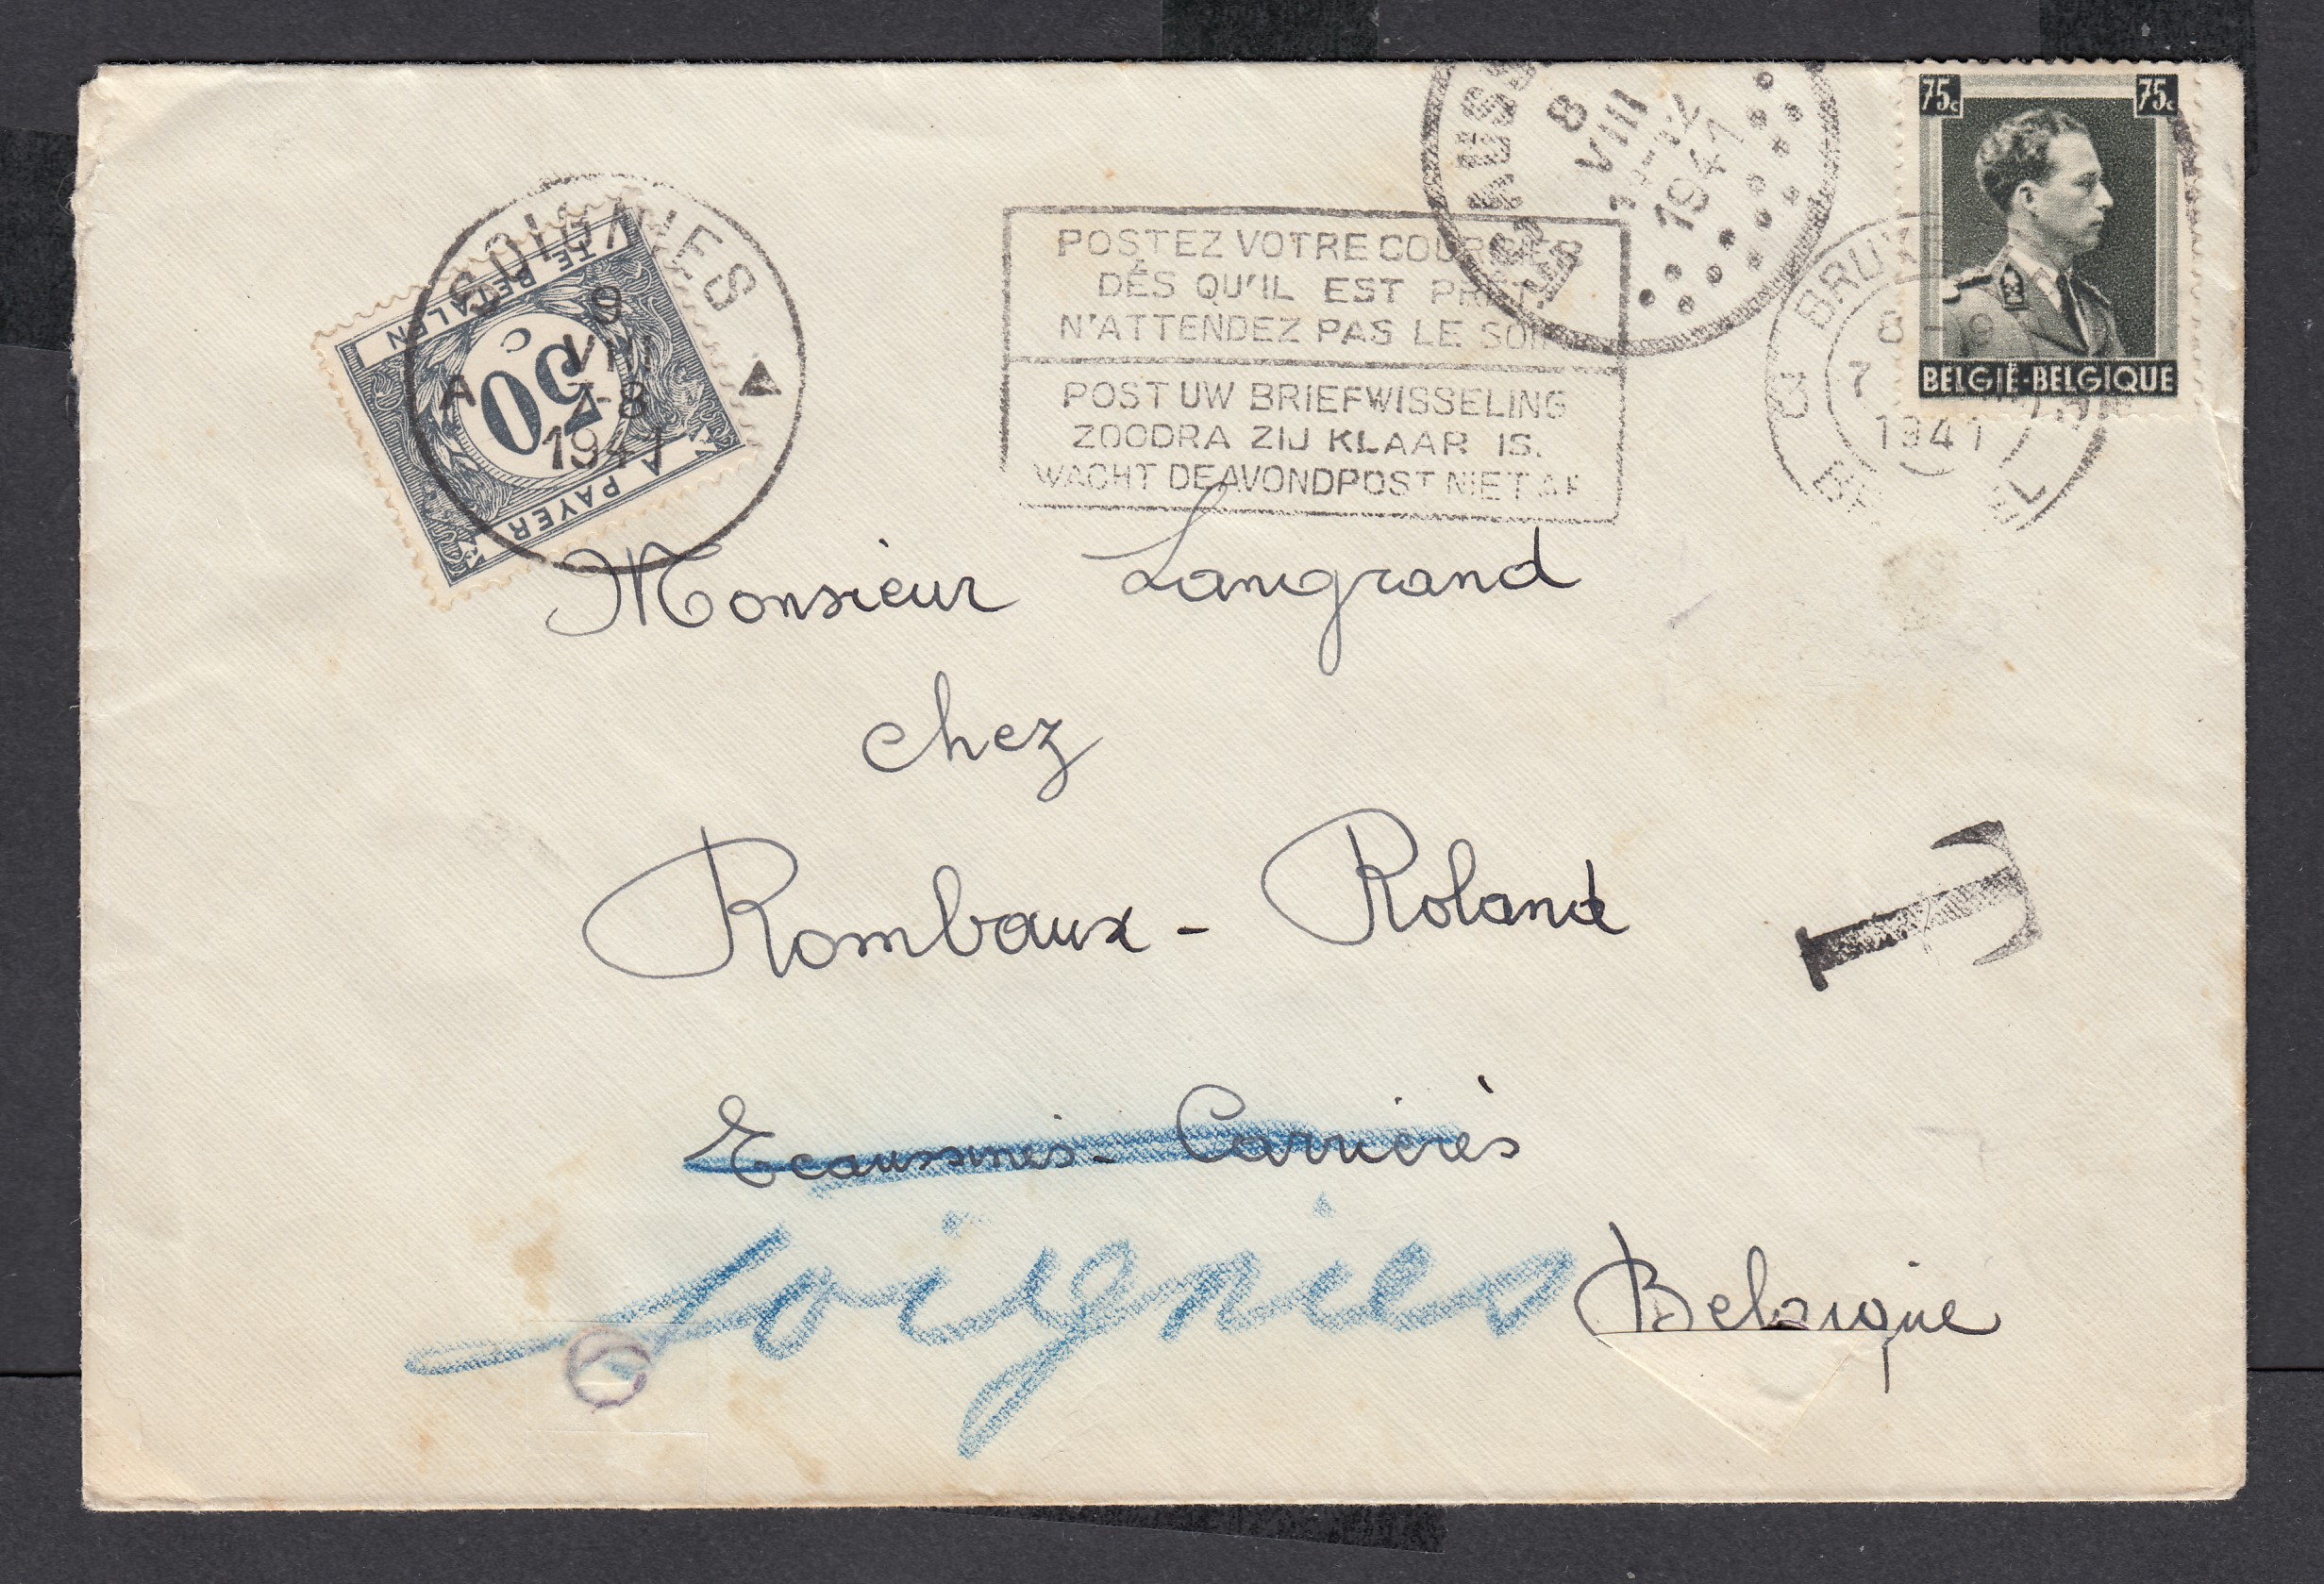 75c 75c
BELGIË-BELGIQUE
8
VIII
1941
8-9
7
1941
POSTEZ VOTRE COURRIER
DÈS QU'IL EST PRÊT.
N'ATTENDEZ PAS LE SOIR
POST UW BRIEFWISSELING
ZOODRA ZIJ KLAAR IS.
WACHT DE AVONDPOST NIET AF
SOIGNIES
A
9
VIII
7-8
1941
TE BETALEN
50
C
A PAYER
Monsieur Langrand
chez
Rombaux - Roland
T
Ecaussines - Carrières
Soignies
Belgique